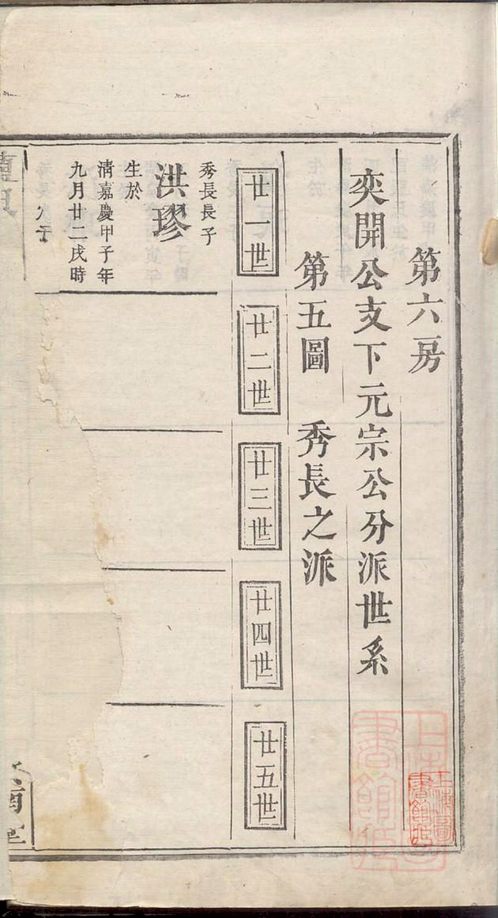 第六房
奕開公支下元宗公分派世系
第五圖 秀長之派
廿一世
廿二世
廿三世
廿四世
廿五世
秀長長子
洪璆
生於
清嘉慶甲子年
九月廿二戌時